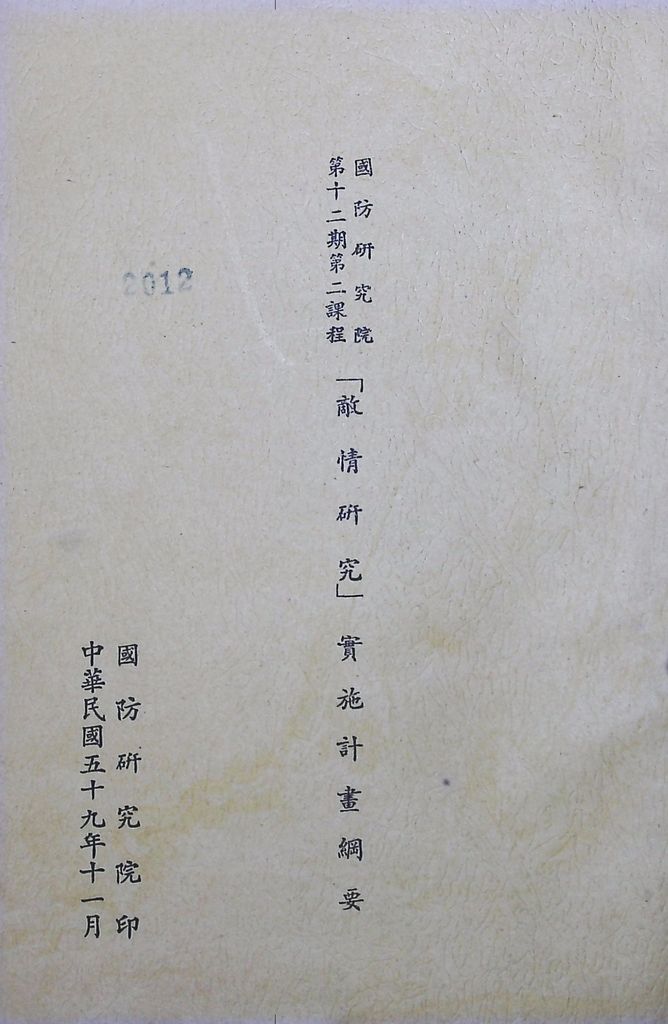 國防研究院
第十二期第二課程
「敵情研究」實施計畫綱要
國防研究院印
中華民國五十九年十一月
2012